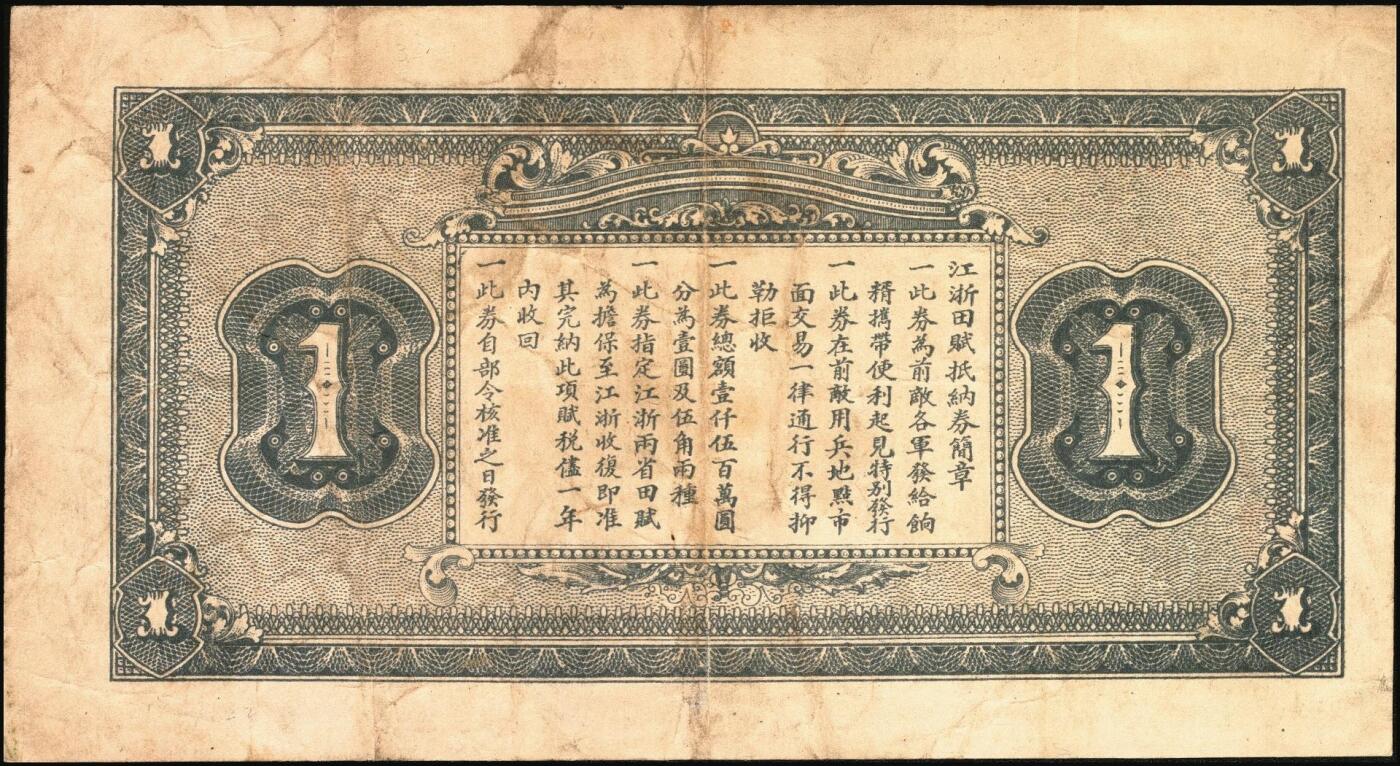 江浙田賦抵納券簡章
一此券為前敵各軍發給餉
糈攜帶便利起見特別發行
一此券在前敵用兵地點市
面交易一律通行不得抑
勒拒收
一此券總額壹仟伍百萬圓
分為壹圓及伍角兩種
一此券指定江浙兩省田賦
為擔保至江浙收復即准
其完納此項賦稅儘一年
內收回
一此券自部令核准之日發行
1
1
1
1
1
1